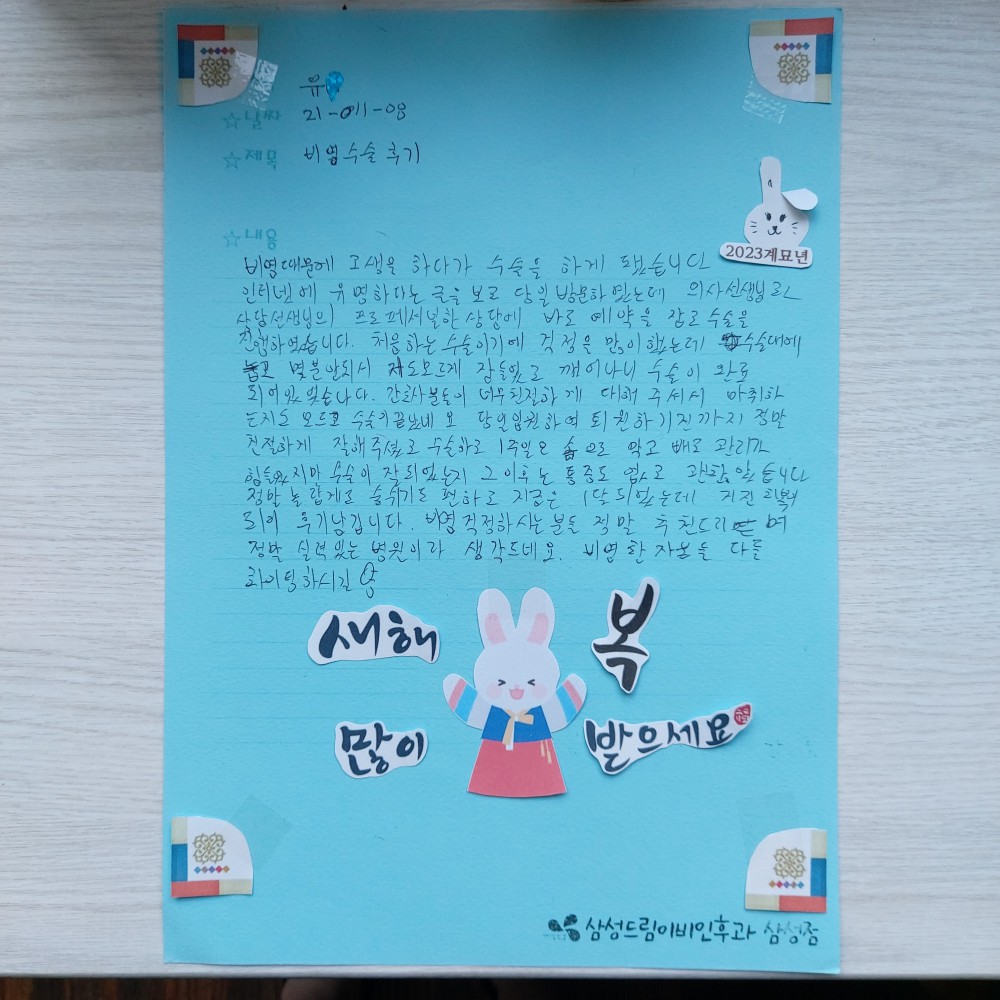 유
☆날짜 21-011-08
☆제목 비염수술 후기
2023계묘년
☆내용
비염때문에 고생을 하다가 수술을 하게 됐습니다
인터넷에 유명하다는 글을 보고 당일 방문하였는데 의사선생님과
상담선생님의 프로페셔널한 상담에 바로 예약을 잡고 수술을
진행하였습니다. 처음하는 수술이기에 걱정을 많이했는데 수술대에
몇분안되서 저도모르게 잠들었고 깨어나니 수술이 완료
되어있었습니다. 간호사분들이 너무친절하게 대해 주셔서 마취하
는지도 모르고 수술이끝났네요 당일입원하여 퇴원하기전까지 정말
친절하게 잘해주셨고 수술하고 1주일은 솜으로 막고 빼고 관리가
힘들었지만 수술이 잘되었는지 그이후는 통증도 없고 괜찮았습니다
정말 놀랍게도 숨쉬기도 편하고 지금은 1달되었는데 거진 회복
되어 후기남깁니다. 비염걱정하시는분들 정말 추천드리며
정말 실력있는 병원이라 생각드네요. 비염환자분들 다들
화이팅하시길
새해 복
많이 받으세요
삼성드림이비인후과 삼성점